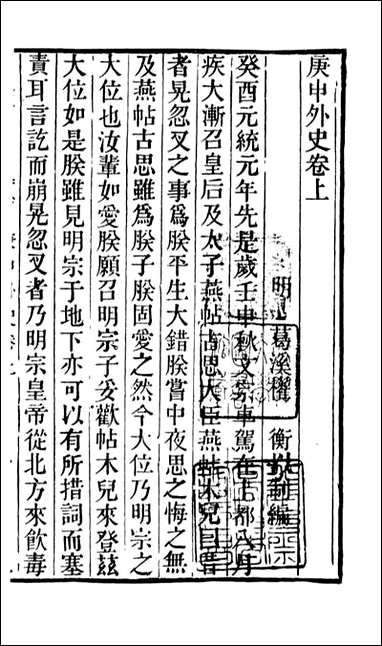 庚申外史卷上
明 葛溪權 衡 編
癸酉元統元年先是歲壬申秋文宗車駕在上都八月
疾大漸召皇后及太子燕帖古思大臣燕帖木兒曰昔
者晃忽叉之事爲朕平生大錯朕嘗中夜思之悔之無
及燕帖古思雖爲朕子朕固愛之然今大位乃明宗之
大位也汝輩如愛朕願召明宗子妥歡帖木兒來登兹
大位如是朕雖見明宗于地下亦可以有所措詞而塞
責耳言訖而崩晃忽叉者乃明宗皇帝從北方來飲毒